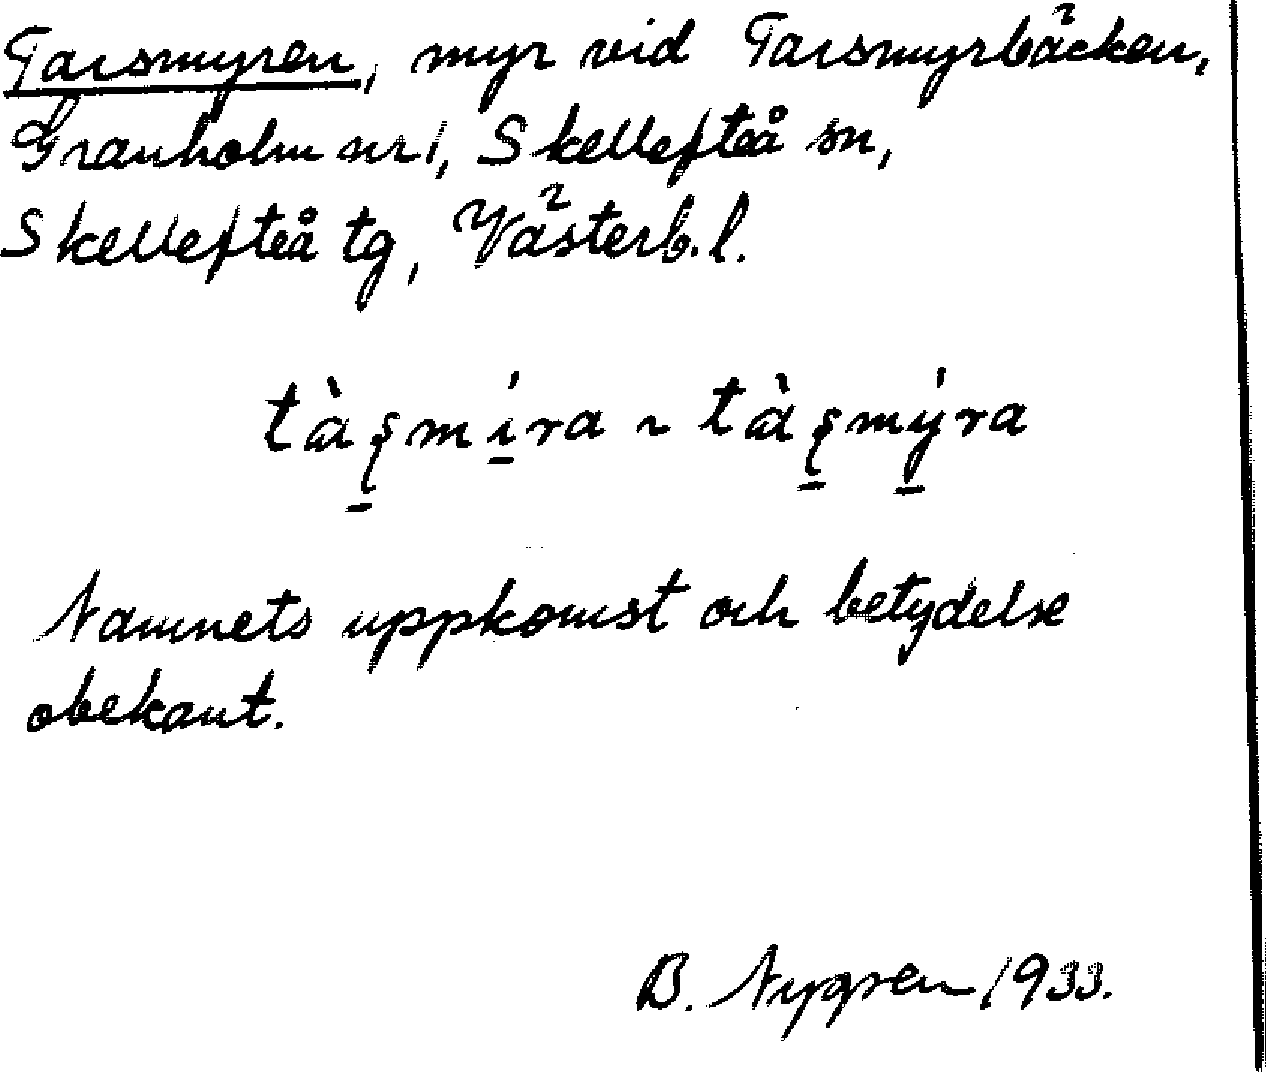 Tarsmyren, myr vid Tarsmyrbäcken,
Granholm nr 1, Skellefteå sn,
Skellefteå tg, Västerb. l.
tàʂ̠mí̠ra ~ tàʂ̠mý̠ra
Namnets uppkomst och betydelse
obekant.
B. Nygren 1933.